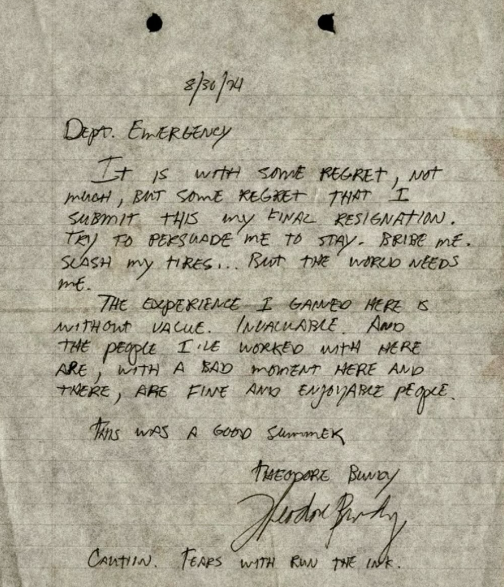 8/30/74
Dept. Emergency
It is with some regret, not
much, but some regret that I
submit this my final resignation.
Try to persuade me to stay. Bribe me.
Slash my tires... But the world needs
me.
The experience I gained here is
without value. Invaluable. And
the people I've worked with here
are, with a bad moment here and
there, are fine and enjoyable people.
This was a good summer
Theodore Bundy
Theodore Bundy
Caution. Tears with run the ink.